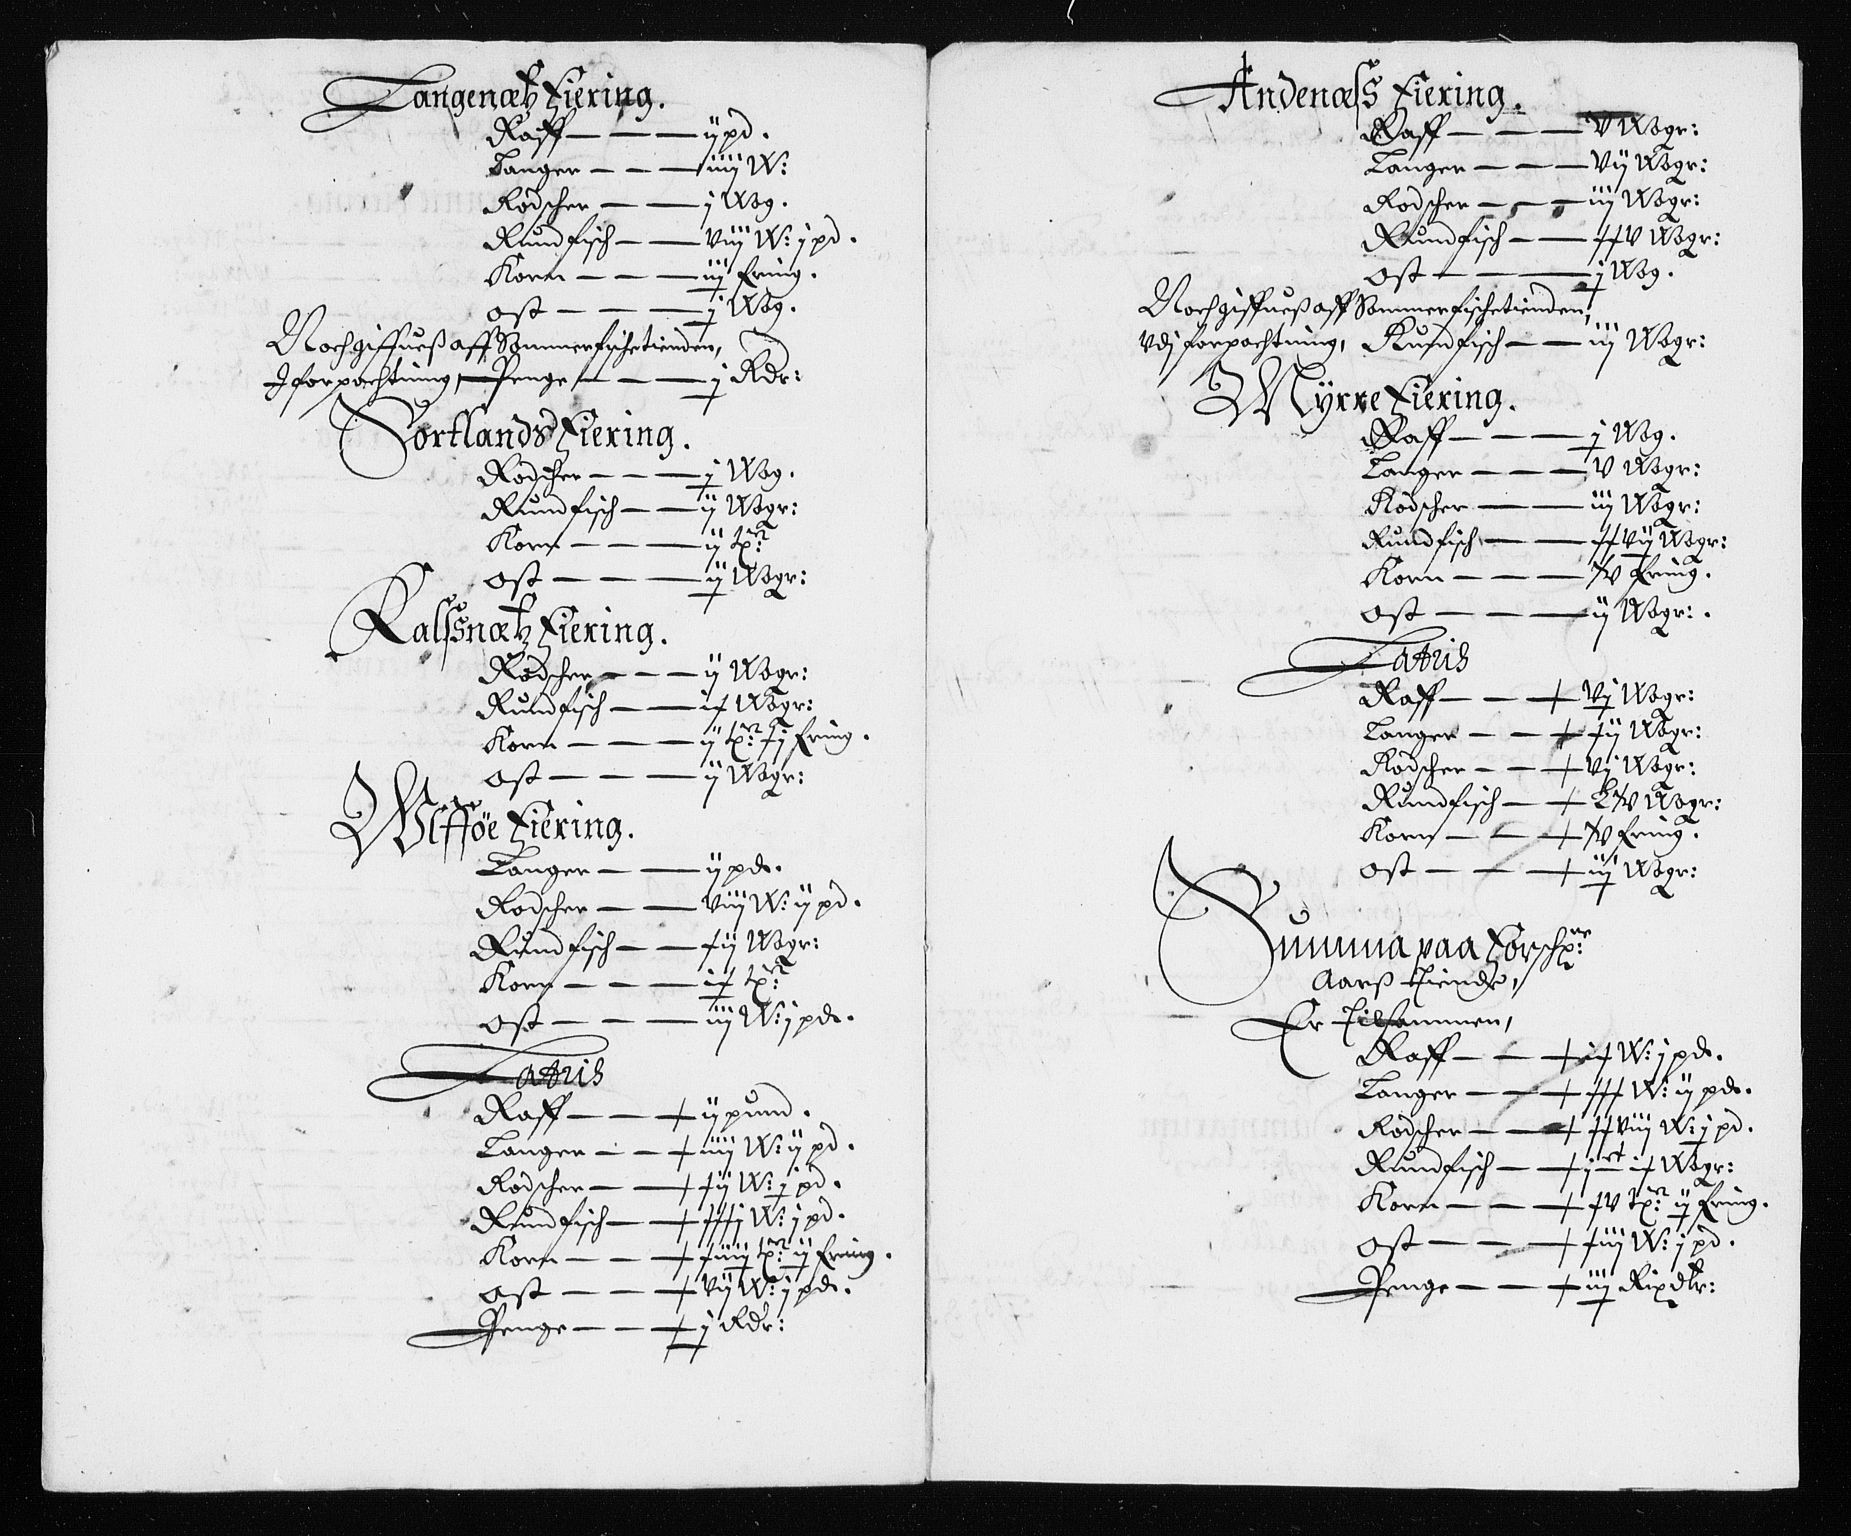 Langenætz Fiering.
Raff — — — ij pd.
Langer — — — iiij W:
Rodscher — — j Wog.
Rundfisch — — viij W: j pd.
Korn — — — iij Ering.
Ost — — — j Wog.
Noch giffues aff Sommerfischetienden,
I forpachtning, Penge — — — j Rdr:
Sortlands Fiering.
Rodscher — — — j Wog.
Rundfisch — — ij Wogr:
Korn — — — ij tr:
Ost — — — ij Wogr:
Kalssnætz Fiering.
Rodscher — — — ij Wogr:
Rundfisch — — ix Wogr:
Korn — — — ij tr: xj Ering.
Ost — — — ij Wogr:
Wlfföe Fiering.
Langer — — ij pd.
Rodscher — — viij W: ij pd.
Rundfisch — — xij Wogr:
Korn — — — ix tr:
Ost — — — iij W: j pd.
Latus
Raff — — + ij pund.
Langer — — + iiij W: ij pd.
Rodscher — — + xij W: j pd.
Rundfisch — + xxxj W: j pd.
Korn — — + xiiij tr: ij Ering.
Ost — — + vij W: j pd.
Penge — — + j Rdr:
Andenæss Fiering.
Raff — — — V Wogr:
Langer — — — Vij Wogr:
Rodscher — — — iij Wogr:
Rundfisch — — xxv Wogr:
Ost — — — j Wog.
Noch giffues aff Sommerfischetienden,
Vdj forpachtning, Rundfisch — — iij Wogr:
Myrre Fiering.
Raff — — — j Wog.
Langer — — — V Wogr:
Rodscher — — iij Wogr:
Rundfisch — — xxvij Wogr:
Korn — — — xv Ering.
Ost — — — ij Wogr:
Latus
Raff — — + Vj Wogr:
Langer — — + xij Wogr:
Rodscher — — + Vj Wogr:
Rundfisch — + Lxv Wogr:
Korn — — + xv Ering.
Ost — — + iij Wogr:
Summa paa Forschr:
Aars Tiende,
Er Tilsammen,
Raff — — + ix W: j pd.
Langer — — + xxx W: ij pd.
Rodscher — — + xxviij W: j pd.
Rundfisch — — + j c ix Wogr:
Korn — — + xv tr: ij Ering.
Ost — — + xiij W: j pd.
Penge — — + iij Rixdlr: